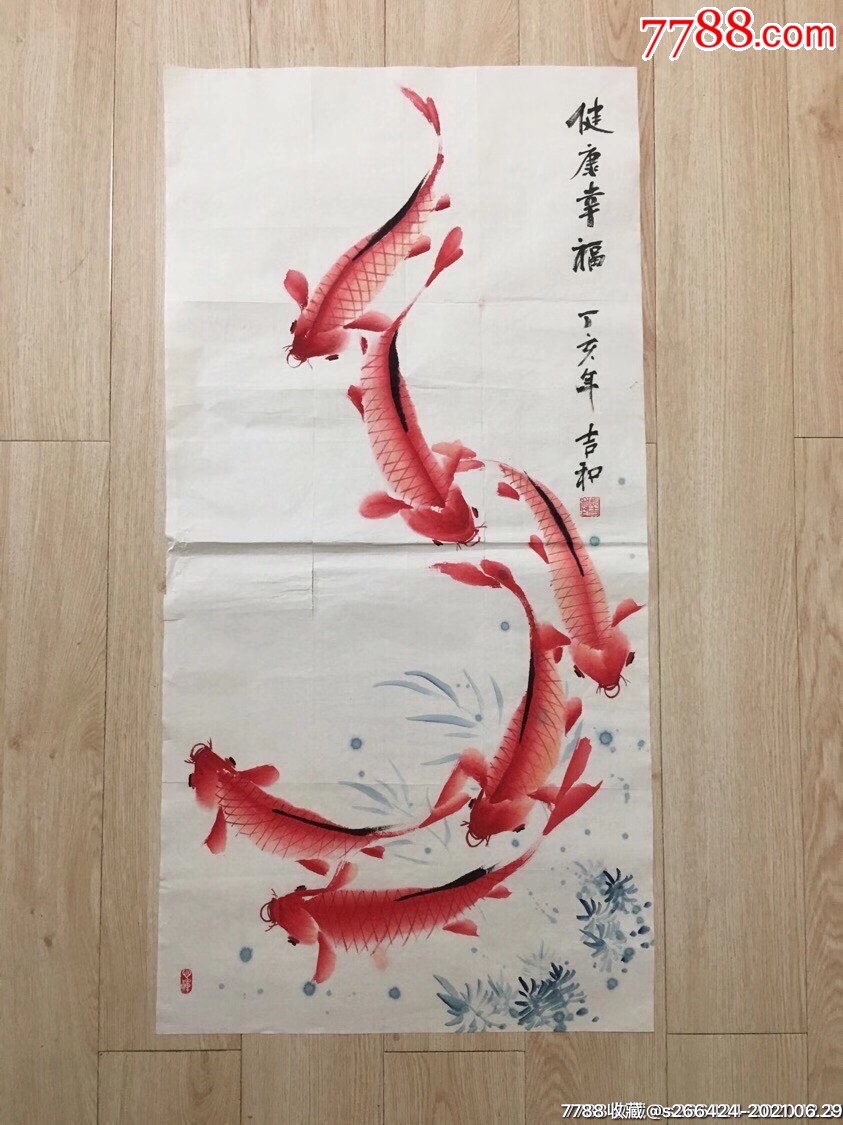 7788.com
健康幸福 丁亥年 吉和
7788收藏@s266424-2021.06.29